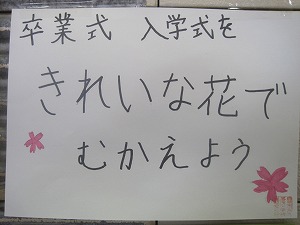 卒業式 入学式を
きれいな花で
むかえよう